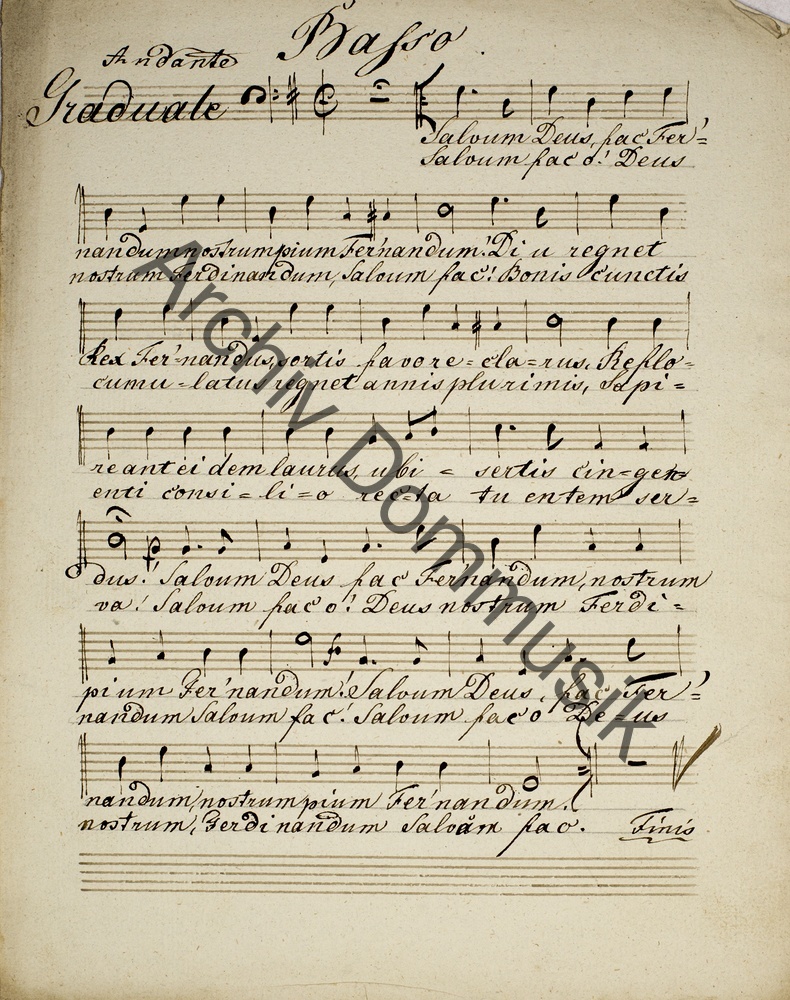 Basso
Andante
Graduale
Salvum Deus, fac Fer'=
Salvum fac o! Deus
nandum nostrum pium Fer'nandum! Di u regnet
nostrum Ferdinandum, Salvum fac! Bonis cunctis
Rex Fer'=nandus, sortis favore=cla=rus. Reflo=
cumu=latus regnet annis plurimis, Sapi=
reant ei dem laurus, ubi = sertis cin=gen
enti consi=li=o rec=ta tu entem ser=
dus! Salvum Deus fac Fer'nandum, nostrum
va! Salvum fac o! Deus nostrum Ferdi=
pi um Fer'nandum! Salvum Deus, fac Fer'=
nandum Salvum fac! Salvum fac o De=us
nandum, nostrum pium Fer'nandum.
nostrum, Ferdinandum Salvum fac. Finis
Archiv Dommusik